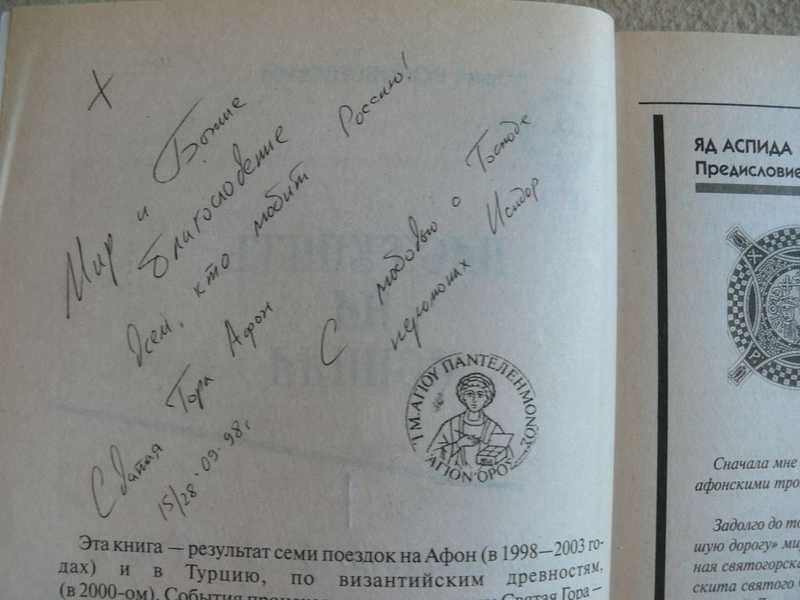 Х
Мир и Божие
благословение
всем, кто любит Россию!
С любовью о Господе
иеромонах Исидор
Святая Гора Афон
15/28·09·98г.
Ι.Μ.ΑΓΙΟΥ ΠΑΝΤΕΛΕΗΜΟΝΟΣ
ΑΓΙΟΝ ΟΡΟΣ
Эта книга — результат семи поездок на Афон (в 1998—2003 го-
дах) и в Турцию, по византийским древностям,
(в 2000-ом). События Святая Гора —
ЯД АСПИДА
Предисловие
Сначала мне
афонскими тро
Задолго до то
шую дорогу» ми
ная святогорска
скита святого